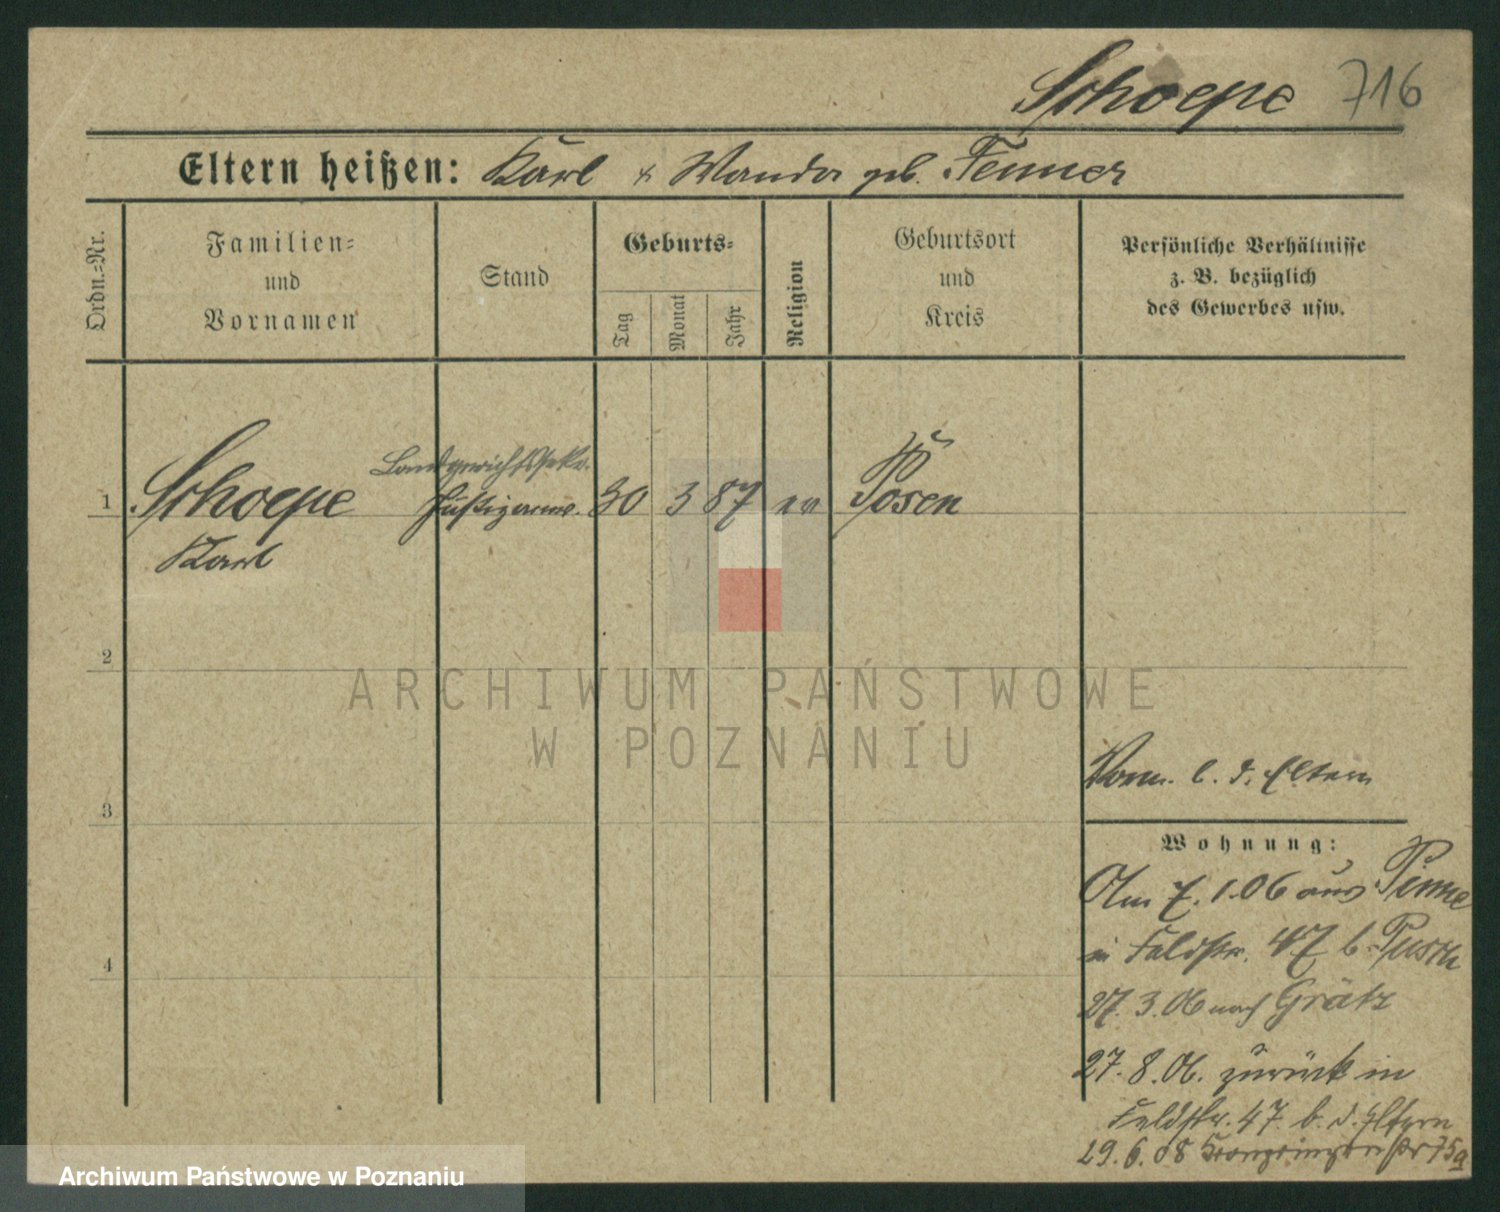 Schoepe 716
Eltern heißen: Karl & Wanda geb. Fenner
Ordn.=Nr.
Familien=
und
Vornamen
Stand
Geburts=
Tag
Monat
Jahr
Religion
Geburtsort
und
Kreis
Persönliche Verhältnisse
z. B. bezüglich
des Gewerbes usw.
Landgerichtssekr.
1 Schoepe Justizanw. 30 3 87 ev Posen
Karl
2
ARCHIWUM PAŃSTWOWE
W POZNANIU
Vorm. b. d. Eltern
3
Wohnung:
Am 7. 1. 06 aus Pinne
in Feldstr. 47 b.
4
27. 3. 06 nach Grätz
27. 8. 06. zurück in
Feldstr. 47. b. d. Eltern
29. 6. 08 Kronprinzenstr 75a
Archiwum Państwowe w Poznaniu